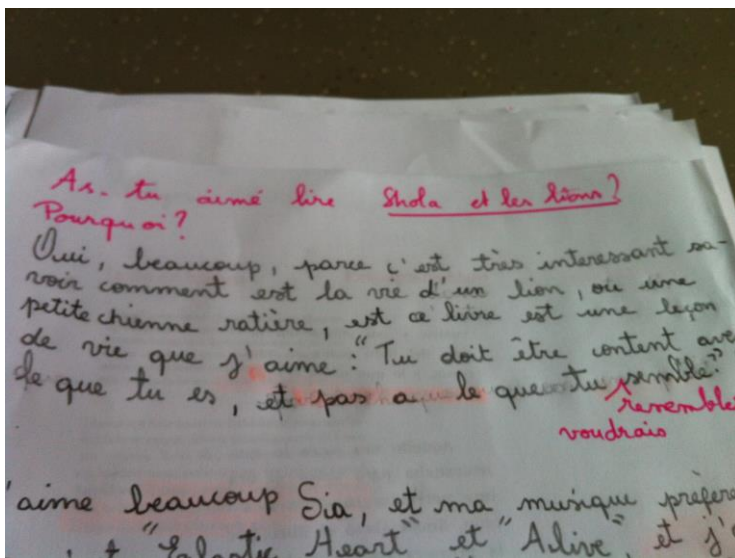 As-tu aimé lire Shola et les lions?
Pourquoi?
Oui, beaucoup, parce c'est très interessant sa-
voir comment est la vie d'un lion, ou une
petite chienne ratière, est ce livre est une leçon
de vie que j'aime: "Tu doit être content ave
de que tu es, et pas a le que tu semble."
ressemble
voudrais
'aime beaucoup Sia, et ma musique préfère
"Galactic Heart" et "Alive" et j'a